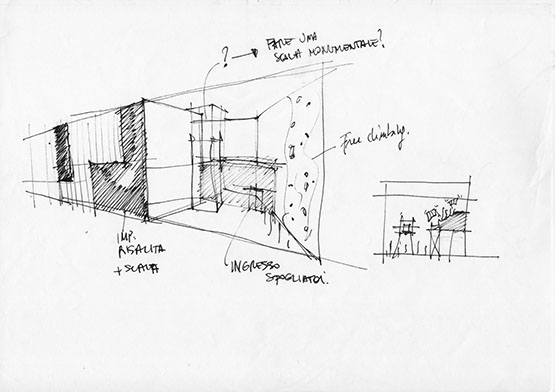 ? → FARE UNA
SCALA MONUMENTALE?
Free climbing.
IMP.
RISALITA
+ SCALA
INGRESSO
SPOGLIATOI.